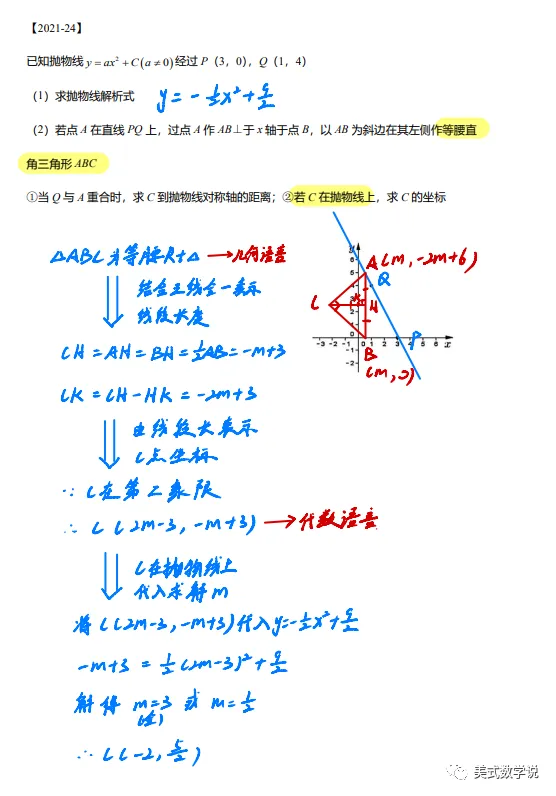 【2021-24】
已知抛物线 y = ax² + C (a ≠ 0) 经过 P（3，0），Q（1，4）
（1）求抛物线解析式 y = -½x² + 9/2
（2）若点 A 在直线 PQ 上，过点 A 作 AB⊥于 x 轴于点 B，以 AB 为斜边在其左侧作等腰直
角三角形 ABC
①当 Q 与 A 重合时，求 C 到抛物线对称轴的距离；②若 C 在抛物线上，求 C 的坐标
△ABC为等腰Rt△ →几何语言
结合三线合一表示
线段长度
CH = AH = BH = ½AB = -m+3
CK = CH - HK = -2m+3
由线段长表示
C点坐标
∵ C在第二象限
∴ C (2m-3, -m+3) →代数语言
C在抛物线上
代入求解m
将C(2m-3, -m+3)代入y=-½x²+9/2
-m+3 = ½(2m-3)²+9/2
解得 m=3 或 m=½
(舍)
∴ C(-2, 5/2)
y
6
5
4
3
2
1
-3 -2 -1 0 1 2 3 4 5 6 x
-1
-2
A(m, -2m+6)
Q
C
K
H
P
B
(m, 0)
美式数学说